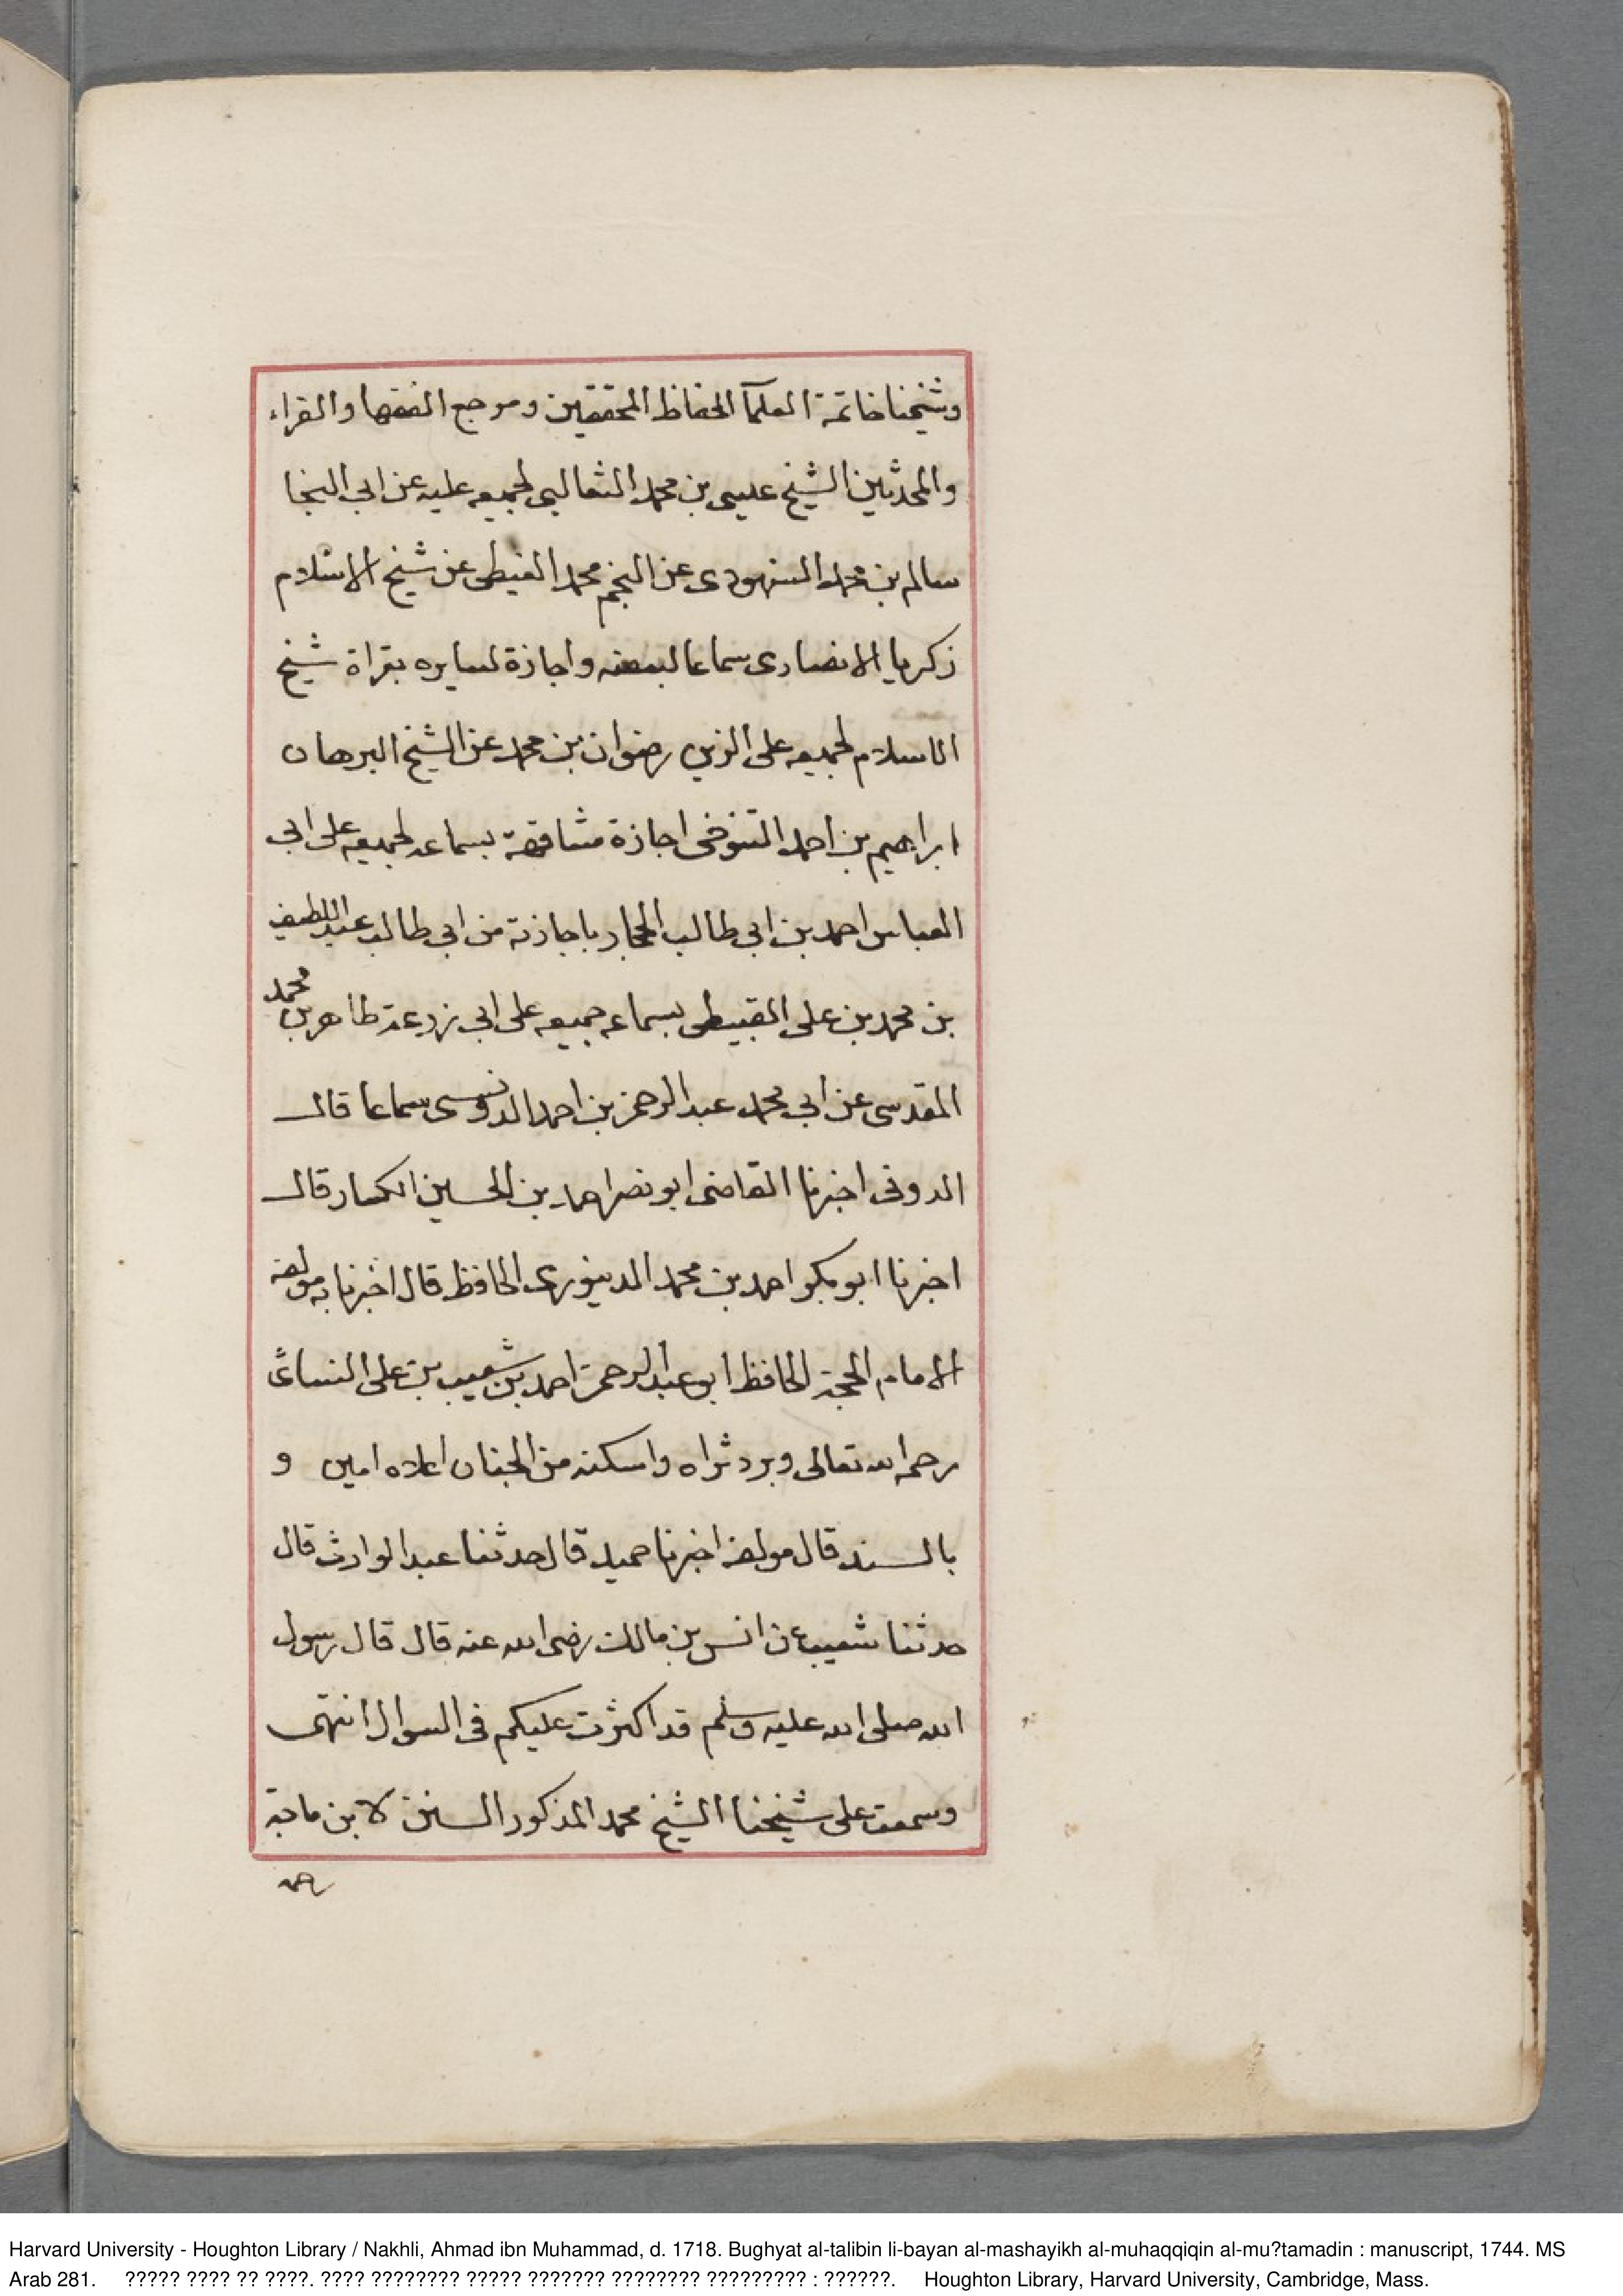 وشيخنا خاتمة العلمآ الحفاظ المحققين ومرجع الفقها والقراء
والمحدثين الشيخ عيسى بن محمد الثعالبي لجميعه عليه عن ابي النجا
سالم بن محمد السنهورى عن النجم محمد الغيطى عن شيخ الاسلام
زكريا الانصارى سماعا لبعضه واجازة لسايره بقراة شيخ
الاسلام لجميعه على الزين رضوان بن محمد عن الشيخ البرهان
ابراهيم بن احمد التنوخى اجازة مشافهة بسماعه لجميعه على ابى
العباس احمد بن ابى طالب الحجار باجازته من ابى طالب عبد اللطيف
بن محمد بن على القبيطى بسماعه جميعه على ابى زرعة طاهر بن محمد
المقدسى عن ابى محمد عبد الرحمن بن احمد سماعا قال
الدونى اخبرنا القاضى ابو نصر احمد بن الحسين الكسار قال
اخبرنا ابو بكر احمد بن محمد الدينورى الحافظ قال اخبرنا به مولفه
الامام الحجة الحافظ ابو عبد الرحمن احمد بن شعيب بن على النساى
رحمه الله تعالى وبرد ثراه واسكنه من الجنان اعلاه امين و
بالسند قال مولفه اخبرنا حميد قال حدثنا عبد الوارث قال
حدثنا شعيب عن انس بن مالك رضى الله عنه قال قال رسول
الله صلى الله عليه وسلم قد اكثرت عليكم فى السوال انتهى
وسمعت على شيخنا الشيخ محمد المذكور السنن لابن ماجة
رحمه
Harvard University - Houghton Library / Nakhli, Ahmad ibn Muhammad, d. 1718. Bughyat al-talibin li-bayan al-mashayikh al-muhaqqiqin al-mu?tamadin : manuscript, 1744. MS
Arab 281. ????? ???? ?? ????. ???? ???????? ????? ??????? ???????? ????????? : ??????. Houghton Library, Harvard University, Cambridge, Mass.